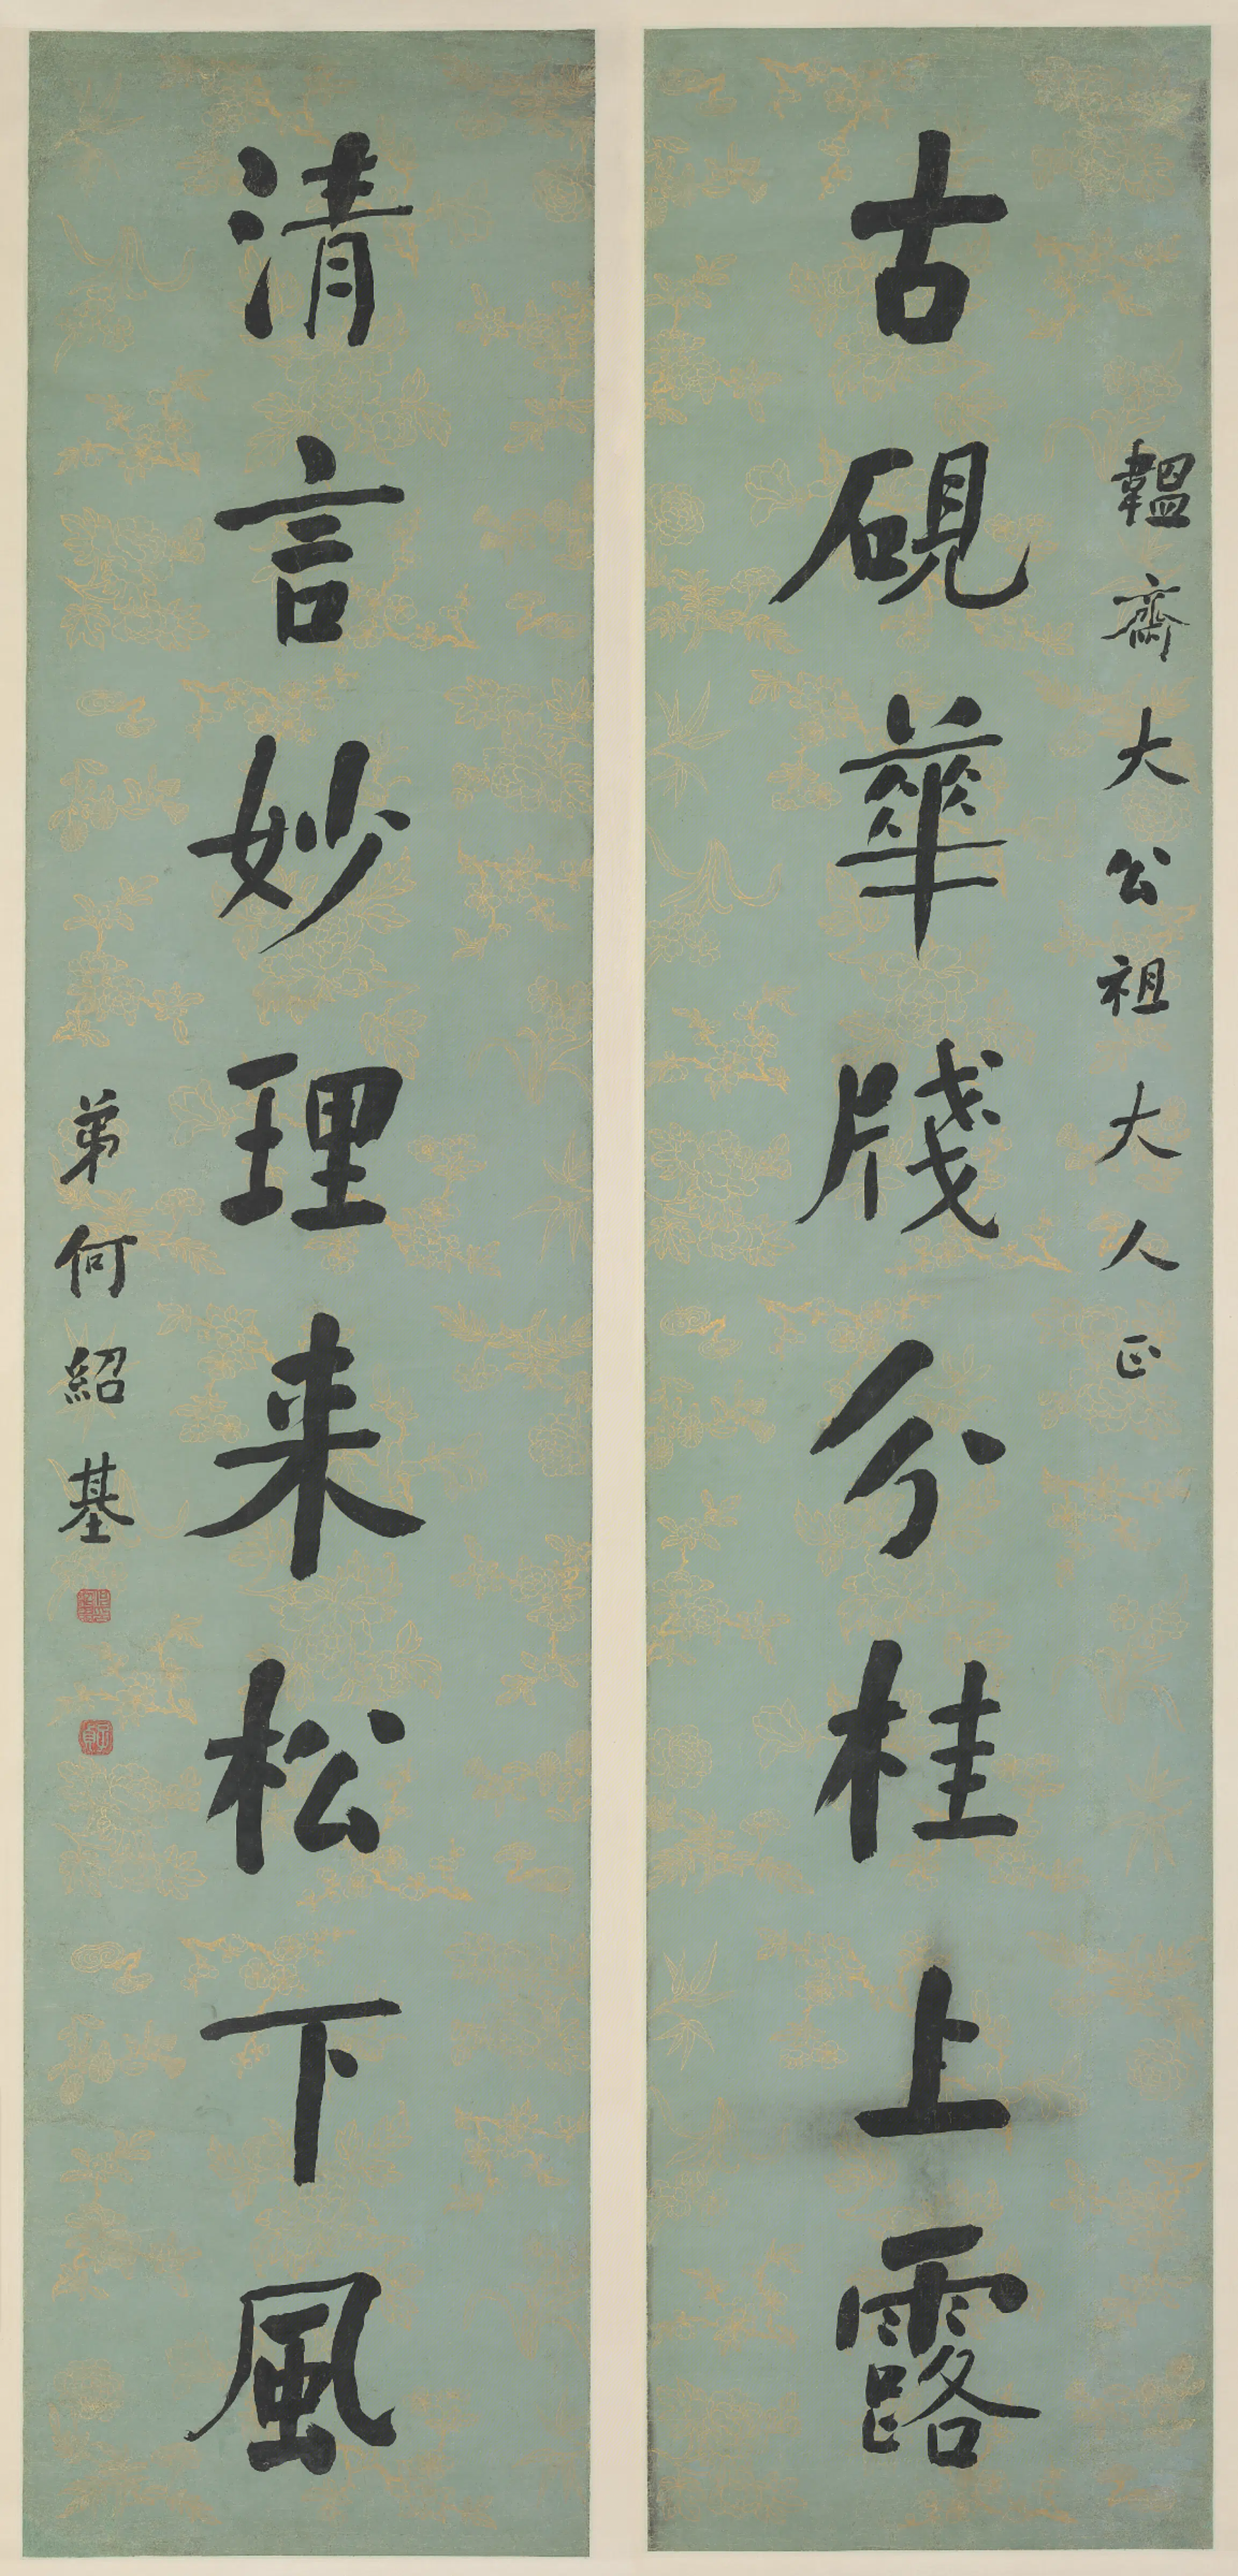 韞齋大公祖大人正
古硯華牋分桂上露
清言妙理来松下風
弟何紹基